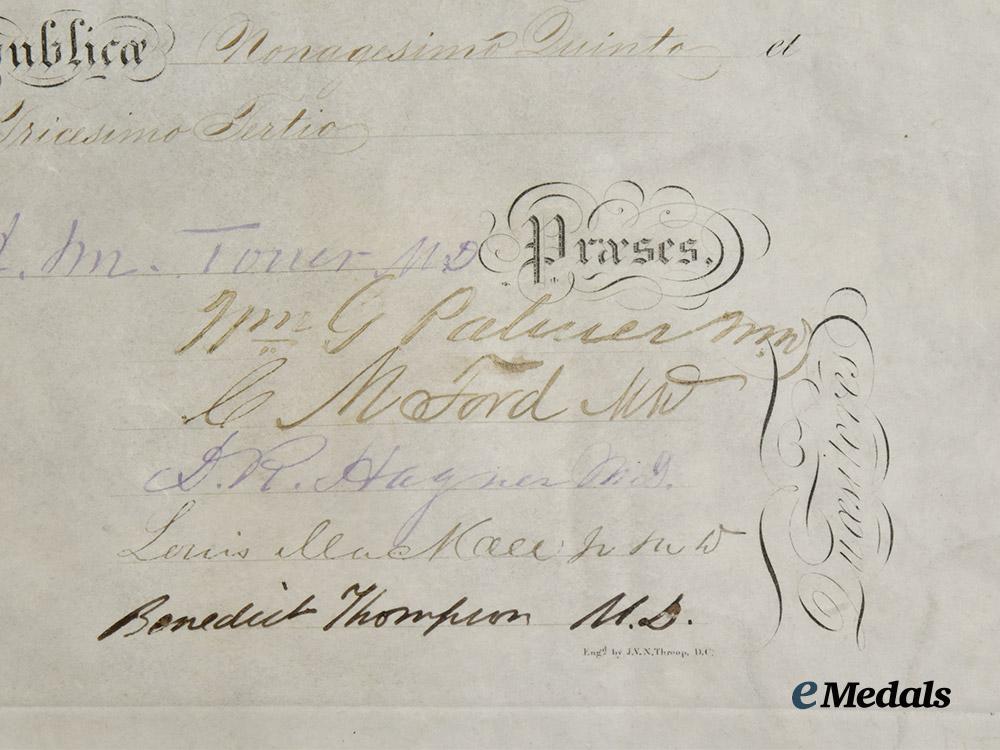 publicæ Nonagesimo Quinto et
Tricesimo Tertio
M. Toner M.D. Præses.
Wm G Palmer M.D.
C M Ford MD
D. R. Hagner M.D.
Louis MacKall Jr M D
Benedict Thompson M.D.
Engd by J.V.N. Throop, D.C.
eMedals